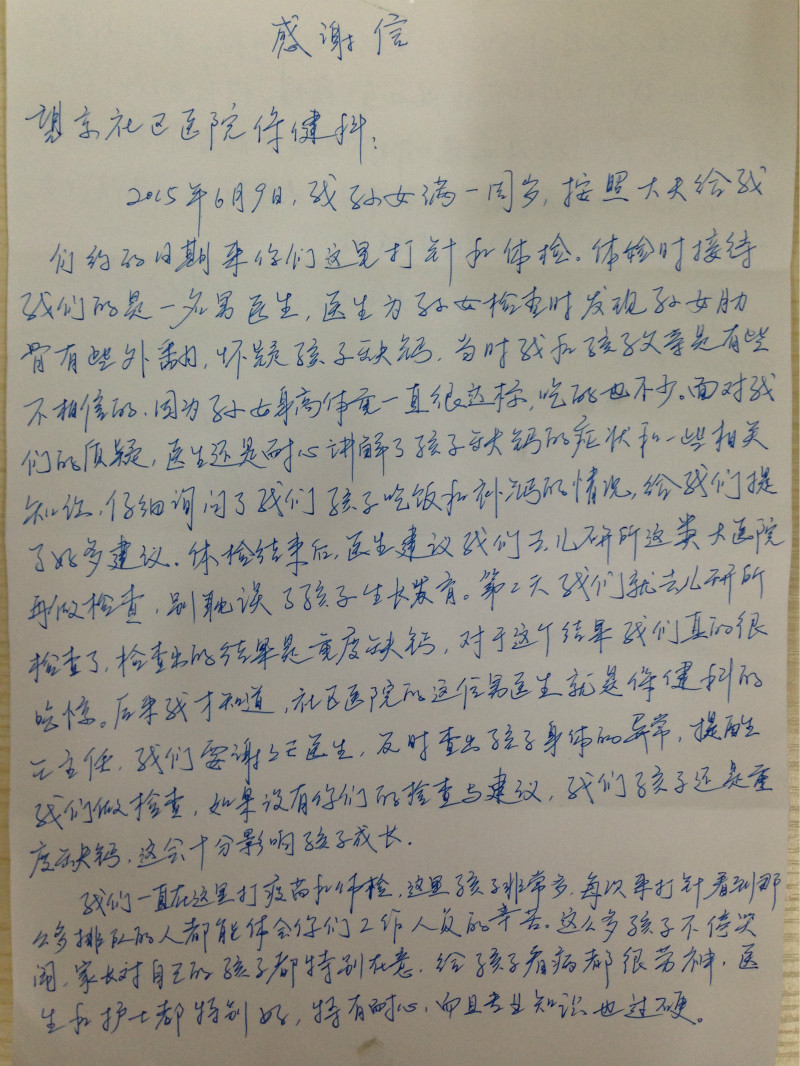 感谢信
望京社区医院保健科：
2015年6月9日，我孙女满一周岁，按照大夫给我
们约的日期来你们这里打针和体检。体检时接待
我们的是一名男医生，医生为孙女检查时发现孙女肋
骨有些外翻，怀疑孩子缺钙，当时我和孩子父亲是有些
不相信的，因为孙女身高体重一直很达标，吃的也不少。面对我
们的质疑，医生还是耐心讲解了孩子缺钙的症状和一些相关
知识，仔细询问了我们孩子吃饭和补钙的情况，给我们提
了好多建议。体检结束后，医生建议我们去儿研所这类大医院
再做检查，别耽误了孩子生长发育。第二天我们就去儿研所
检查了，检查出的结果是重度缺钙，对于这个结果我们真的很
吃惊。后来我才知道，社区医院的这位男医生就是保健科的
王主任，我们要谢谢王医生，及时查出孩子身体的异常，提醒
我们做检查，如果没有你们的检查与建议，我们孩子还是重
度缺钙，这会十分影响孩子成长。
我们一直在这里打疫苗和体检，这里孩子非常多，每次来打针看到那
么多排队的人都能体会你们工作人员的辛苦。这么多孩子不停哭
闹，家长对自己的孩子都特别在意，给孩子看病都很劳神，医
生和护士都特别好，特有耐心，而且专业知识也过硬。